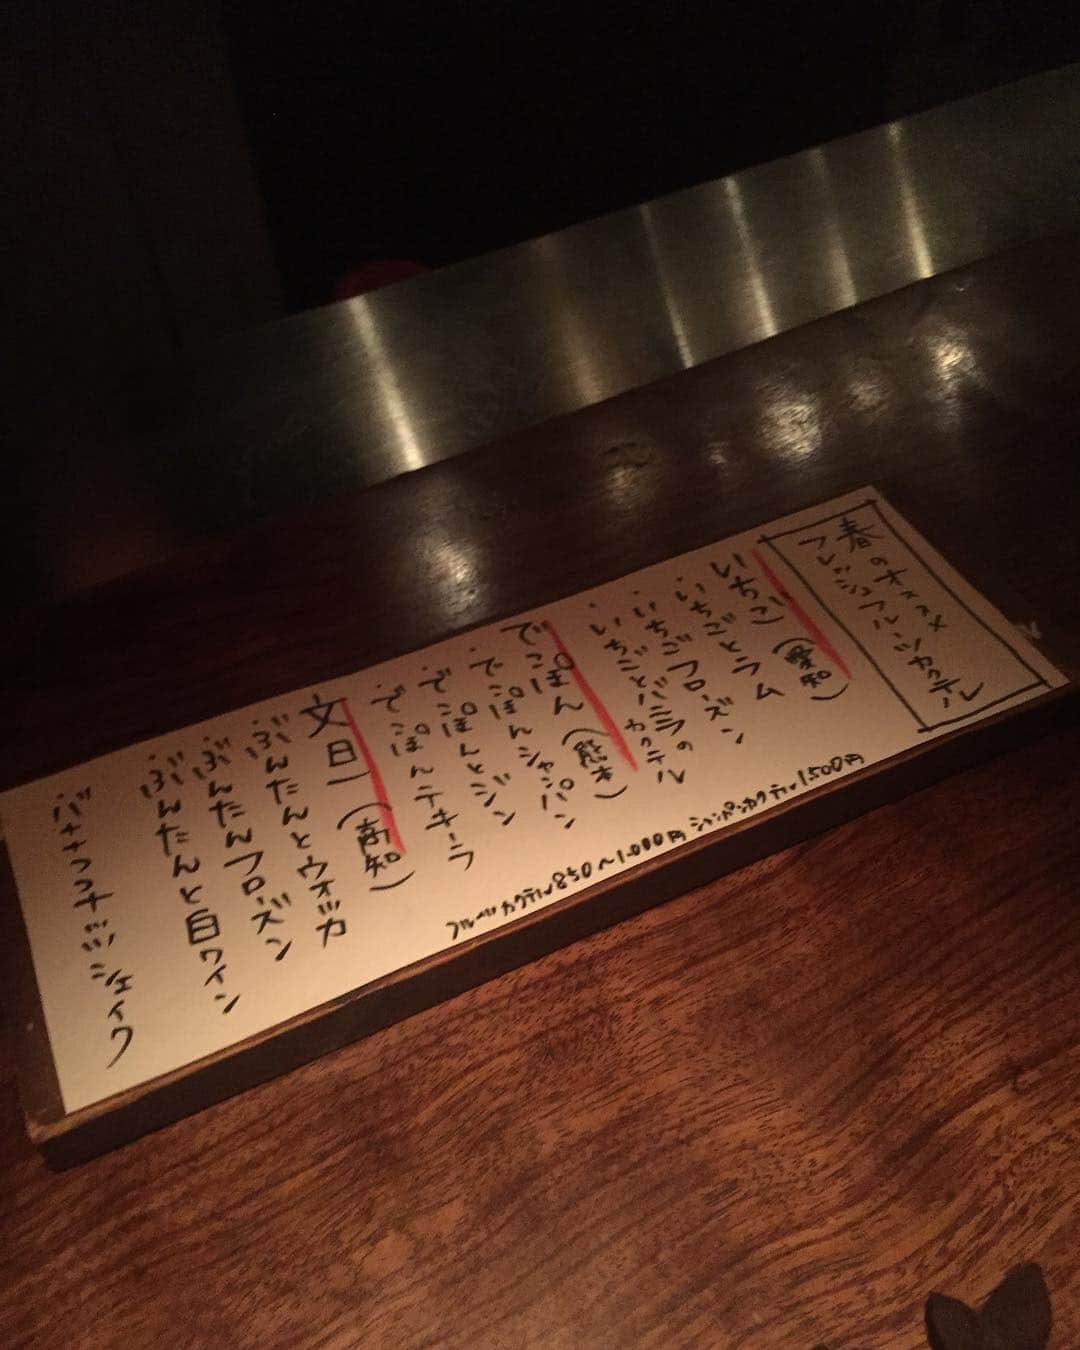 春のオススメ
フレッシュフルーツカクテル
いちご(愛知)
・いちごとラム
・いちごフローズン
・いちごとバニラのカクテル
でこぽん(熊本)
・でこぽんシャンパン
・でこぽんとジン
・でこぽんテキーラ
文旦(高知)
・ぶんたんとウオッカ
・ぶんたんフローズン
・ぶんたんと白ワイン
・バナナココナッツシェイク
フルーツカクテル850〜1.000円 シャンパンカクテル1500円